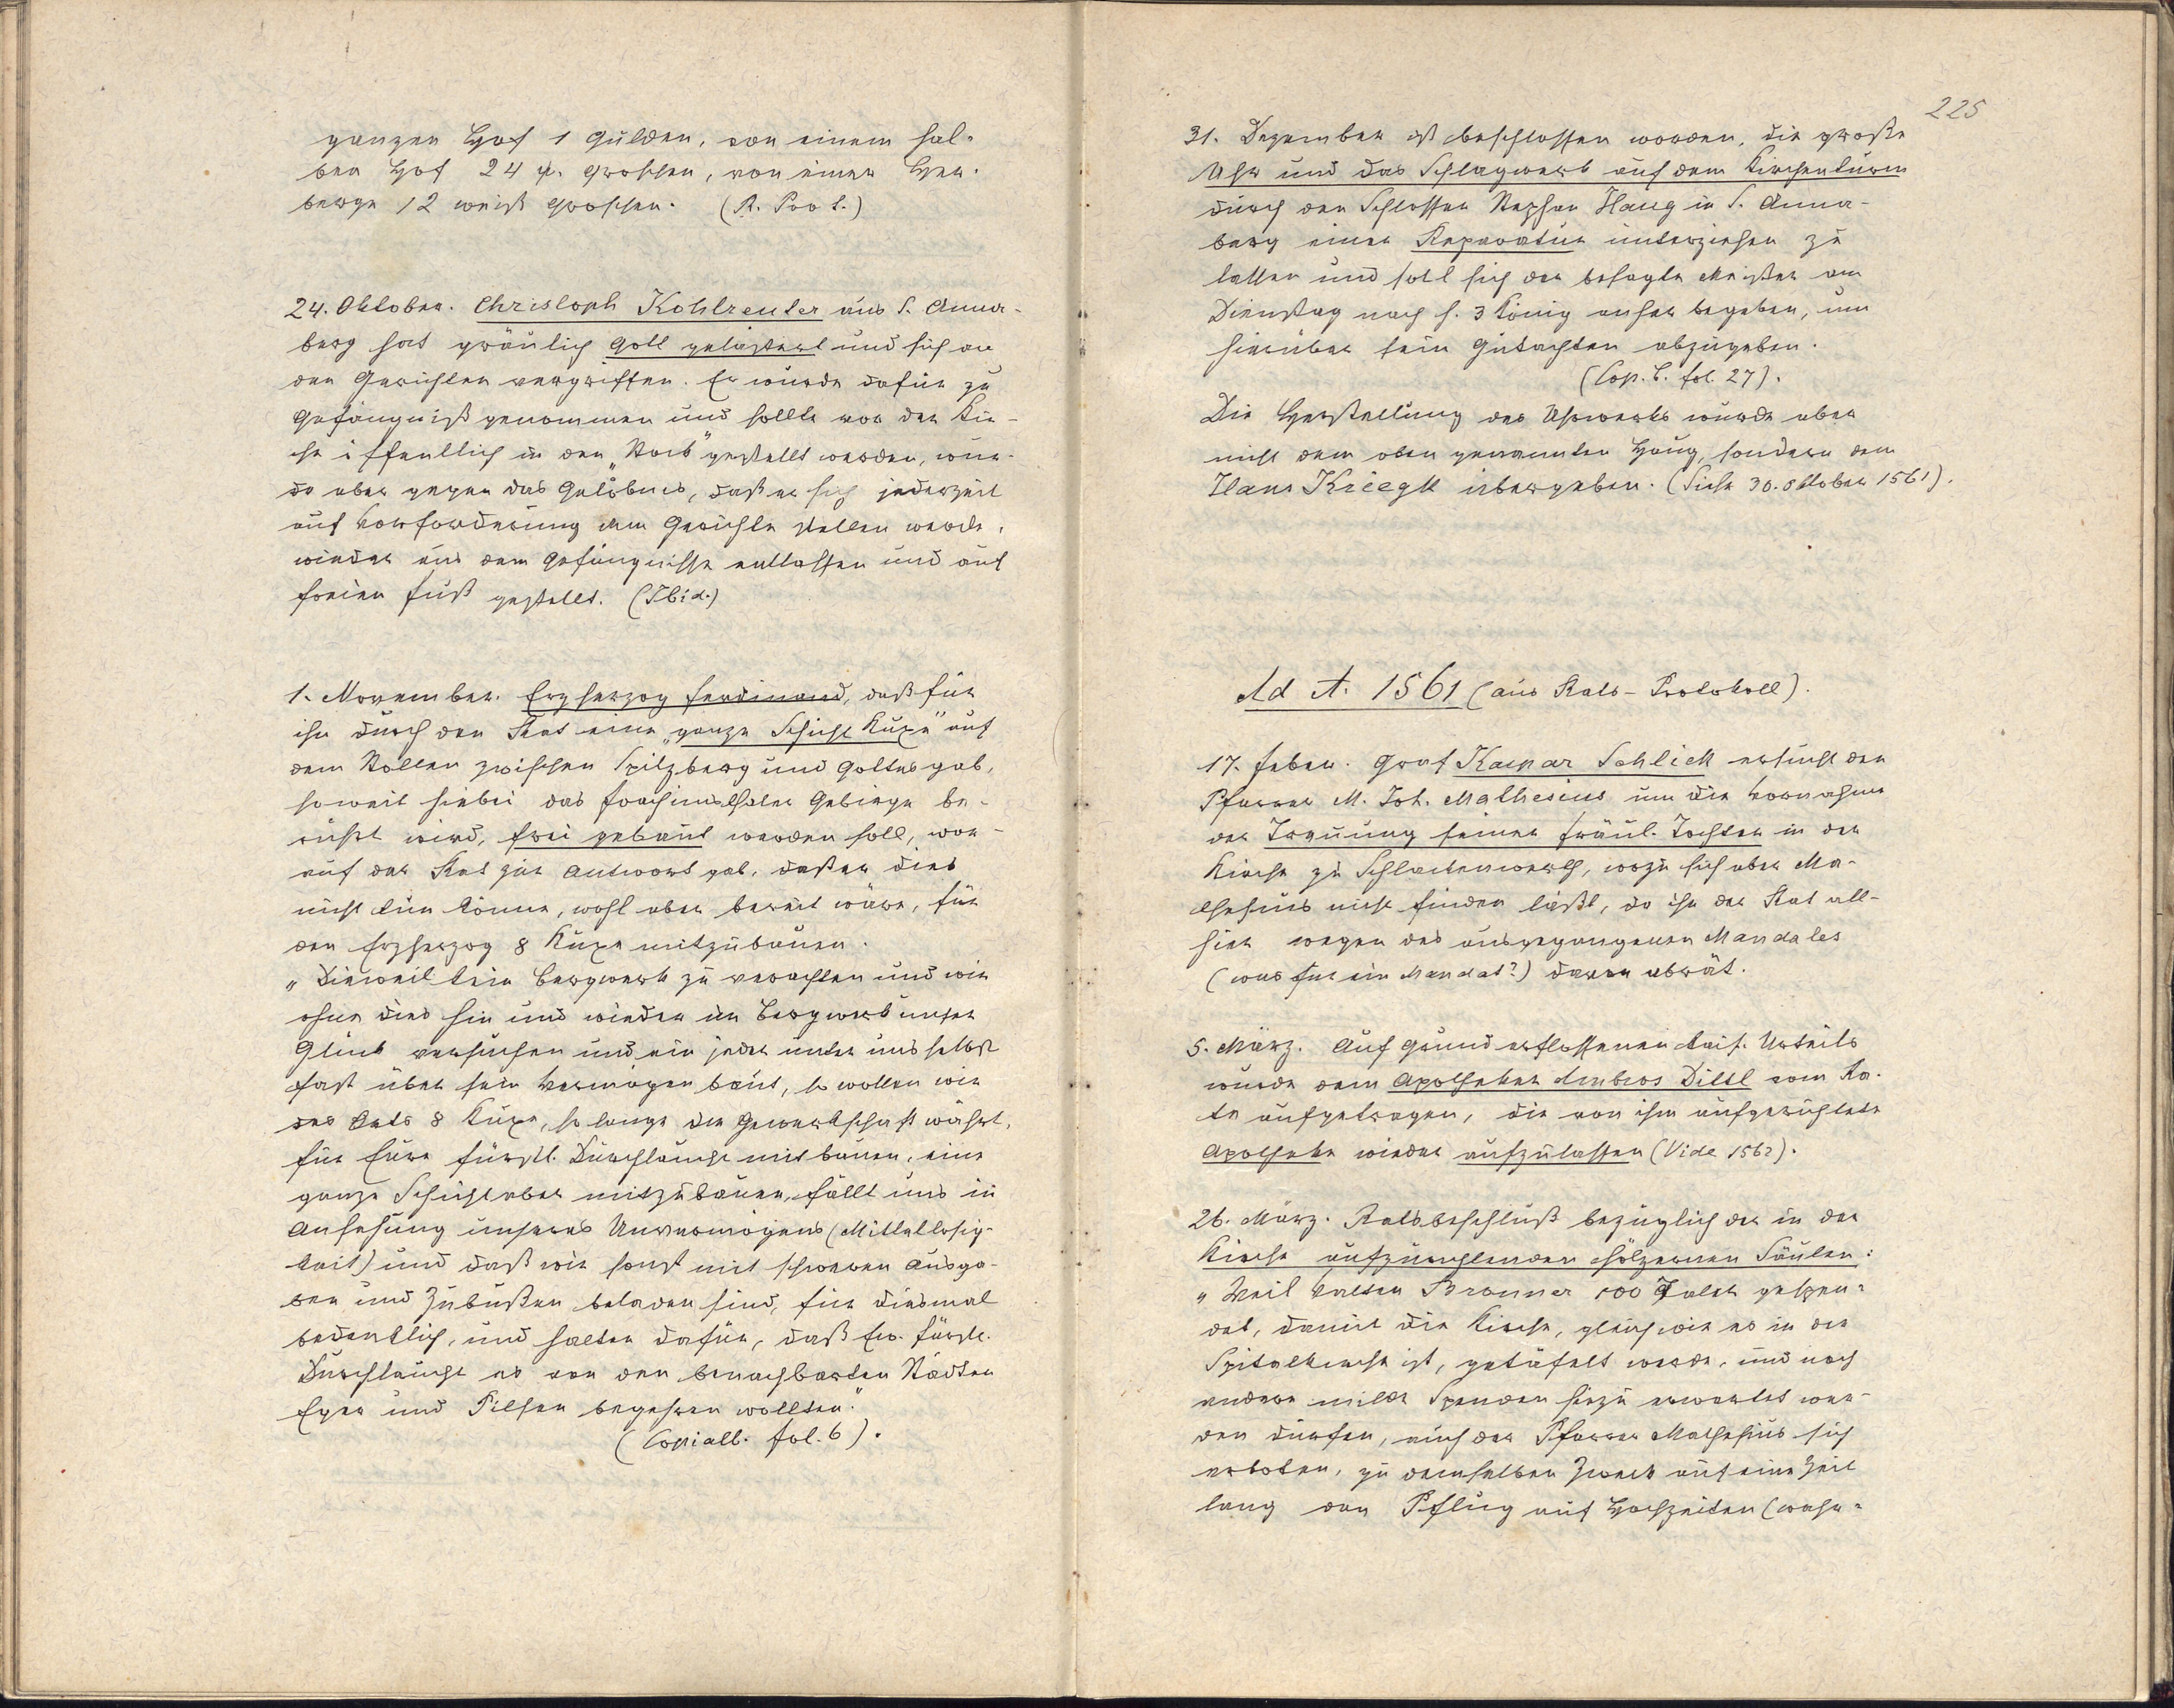 ganzen Hof 1 Gulden, von einem hal-
ben Hof 24 w. Groschen, von einer Her-
berge 12 weiß Groschen. (R. Prot.)
24. Oktober. Christoph Kohlreuter aus S. Anna-
berg hat gräulich Gott gelästert und sich an
den Gerichten vergriffen. Er wurde dafür zu
Gefängniß genommen und sollte vor der Kir-
che öffentlich in den „Stock" gestellt werden, wur-
de aber gegen das Gelöbnis, daß er sich jederzeit
auf Vorforderung dem Gerichte stellen werde,
wieder aus dem Gefängnisse entlassen und auf
freien Fuß gestellt. (Ibid.)
1. November. Erzherzog Ferdinand, daß für
ihn durch den Rat eine „ganze Schicht Kuxe" auf
dem Stollen zwischen Spitzberg und Gottesgab,
soweit hiebei das Joachimsthaler Gebirge be-
rührt wird, frei gebaut werden soll, wor-
auf der Rat zur Antwort gab, daß er dies
nicht tun könne, wohl aber bereit wäre, für
den Erzherzog 8 Kuxe mitzubauen.
„Dieweil kein Bergwerk zu verachten und wir
ohne dies hin und wieder im Bergwerk unser
Glück versuchen und ein jeder unter uns selbst
fast über sein Vermögen baut, so wollen wir
des Rats 8 Kuxe, so lange die Gewerkschaft währt,
für Eure fürstl. Durchlaucht mit bauen, eine
ganze Schicht aber mitzubauen, fällt uns in
Ansehung unseres Unvermögens (Mittellosig-
keit) und daß wir sonst mit schweren Ausga-
ben und Zubußen beladen sind, für diesmal
bedenklich, und halten dafür, daß Ew. fürstl.
Durchlaucht es von den benachbarten Städten
Eger und Pilsen begehren wollten."
(Copialb. fol. 6).
225
31. Dezember ist beschlossen worden, die große
Uhr und das Schlagwerk auf dem Kirchenturm
durch den Schlosser Stephan Haug in S. Anna-
berg einer Reparatur unterziehen zu
lassen und soll sich der besagte Meister am
Dienstag nach h. 3 König anher begeben, um
hierüber sein Gutachten abzugeben.
(Cop. b. fol. 27).
Die Herstellung des Uhrwerks wurde aber
nicht dem oben genannten Haug, sondern dem
Hans Kriegk übergeben. (Siehe 30. Oktober 1561).
Ad A. 1561 (aus Rats-Protokoll).
17. Feber. Graf Kaspar Schlick ersucht den
Pfarrer M. Joh. Mathesius um die Vornahme
der Trauung seiner Fräul. Tochter in der
Kirche zu Schlackenwerth, wozu sich aber Ma-
thesius nicht finden läßt, da ihn der Rat all-
hier wegen des ausgegangenen Mandates
(was für ein Mandat?) davon abrät.
5. März. Auf Grund erflossenen kais. Urteils
wurde dem Apotheker Ambros Dittl vom Ra-
te aufgetragen, die von ihm aufgerichtete
Apotheke wieder aufzulassen (Vide 1562).
26. März. Ratsbeschluß bezüglich der in der
Kirche aufzurichtenden hölzernen Säulen:
„Weil Valten Bronner 100 Taler gespen-
det, damit die Kirche, gleich wie es in der
Spitalkirche ist, getäfelt werde, und noch
andere milde Spenden hiezu erwartet wer-
den dürfen, auch der Pfarrer Mathesius sich
erboten, zu demselben Zweck auf eine Zeit
lang den Pflug auf Hochzeiten (wahr-